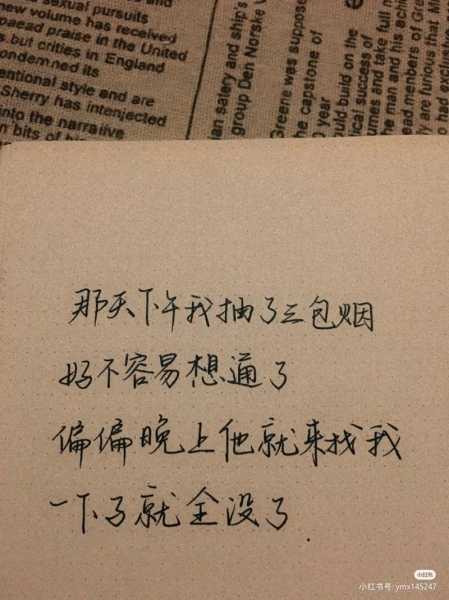 sexual pursuits
new volume has received
paead praise in the United
s.but critics in England
ondemned its
entional style and are
Sherry has intenjected
into the narraiive
n bits of
ian satery and ship's
group Den Norske
Greene was suppose
the capstone of
0 year
ould build on the
ical success of
umes and take full
he man and his achi
ead members of Gre
y are funious that
had exclusive
那天下午我抽了三包烟
好不容易想通了
偏偏晚上他就来找我
一下子就全没了.
小红书
小红书号: ymx145247